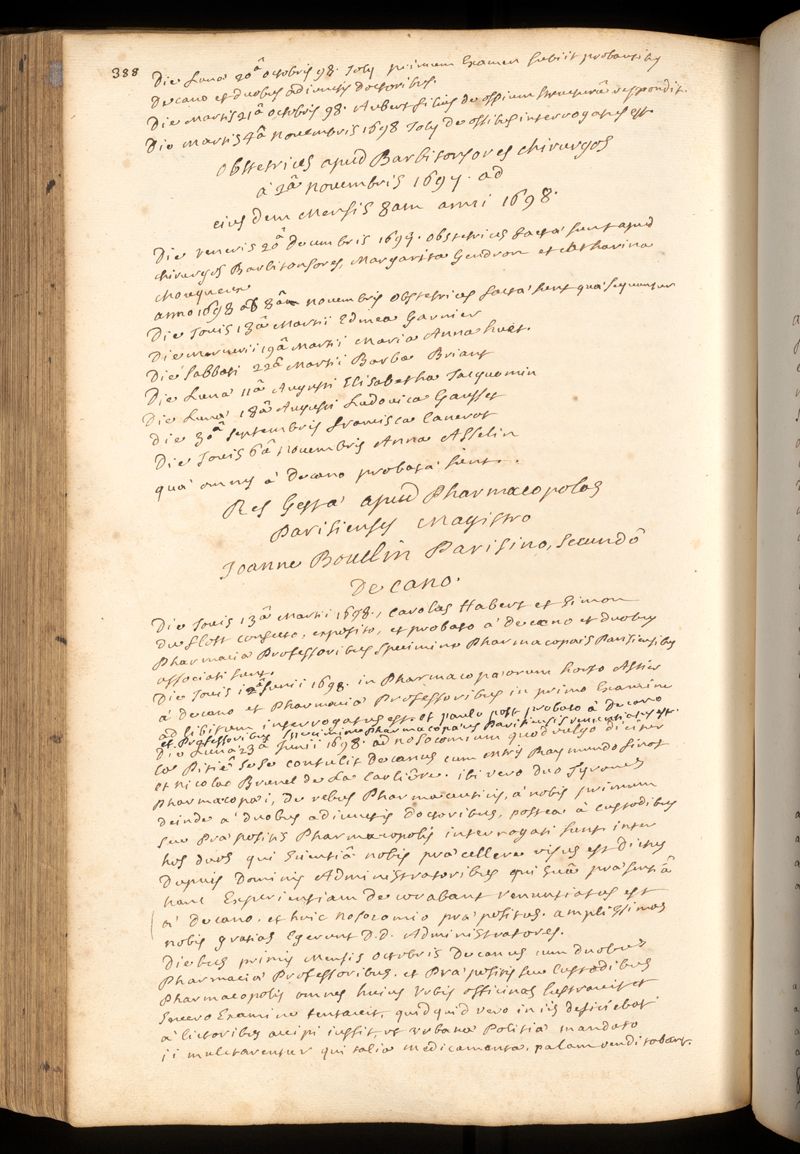 388
Die Lunæ 20â octobris 98. Joly primum Examen subiit probantibus
Decano et duobus adiunctis doctoribus.
Die Martis 21â octobris 98. Aubert filius de ossium structurâ respondit.
Die Martis 4â Novembris 1698 Joly de ossibus interrogatus est
Obstetrices apud Barbitonsores chirurgos
a 2â novembris 1697. ad
eiusdem Mensis 8am anni 1698.
Die veneris 20â Decembris 1697. obstetrices factæ sunt apud
chirurgos Barbitonsores, Margarita Gendron et Catharina
anno 1698 ad 8am novembris obstetrices factæ sunt quæ sequuntur
Die Jovis 13â Martii Edmea Garnier
Die Mercurii 19â Martii Maria Anna huët.
Die Sabbati 22â Martii Barba Briant
Die Lunæ 11â Augusti Elisabetha Jacquemin
Die Lunæ 18â Augusti Ludovica Gausset
die 30â septembris francisca Canerot
Die Jovis 6â Novembris Anna Asselin
quæ omnes a Decano probatæ sunt.
Res Gestæ apud Pharmacopolas
Parisienses Magistro
Joanne Boudin Parisino, secundô
Decano.
Die Jovis 13â Martii 1698, Carolus Habert et Simon
confecto, exposito, et probato â decano et duobus
Pharmaciæ Professoribus specimine Pharmacopæis Parisiensibus
associati sunt.
Die Jovis 12â Junii 1698. in Pharmacopæorum horto
â decano et Pharmaciæ Professoribus in primo Examine
ad libitum interrogatus est et paulo post probato â Decano
et Professoribus specimine Pharmacopæus Parisiensis renuntiatus est.
Die Lunæ 23â Junii 1698. ad nosocomium quod vulgo dicitur
la Pitié sese contulit decanus cum
et Nicolao Brunel de La Carliere. ibi vero duo Tyrones
Pharmacopæi, de rebus Pharmaceuticis, â nobis primum
deinde a duobus adiunctis doctoribus, postea â custodibus
seu Præpositis Pharmacopolis interrogati sunt inter
hos duos qui scientiâ nobis præcellere visus est dictus
Dupuis Dominis Administratoribus qui suâ præsentiâ
hanc Experientiam decorabant renuntiatus est
â decano, et huic nosocomio præpositus. amplissimas
nobis gratias Egerunt D.D. Administratores.
Diebus primis Mensis octobris Decanus cum duobus
Pharmaciæ Professoribus, et Præpositis seu Custodibus
Pharmacopolis omnes huius Urbis officinas lustravit et
severo Examine tentavit, quidquid vero in iis deficiebat
â lictoribus accipi iussit, et urbanæ Politiæ mandato
ii mulctarentur qui talia medicamenta palam venditabant.